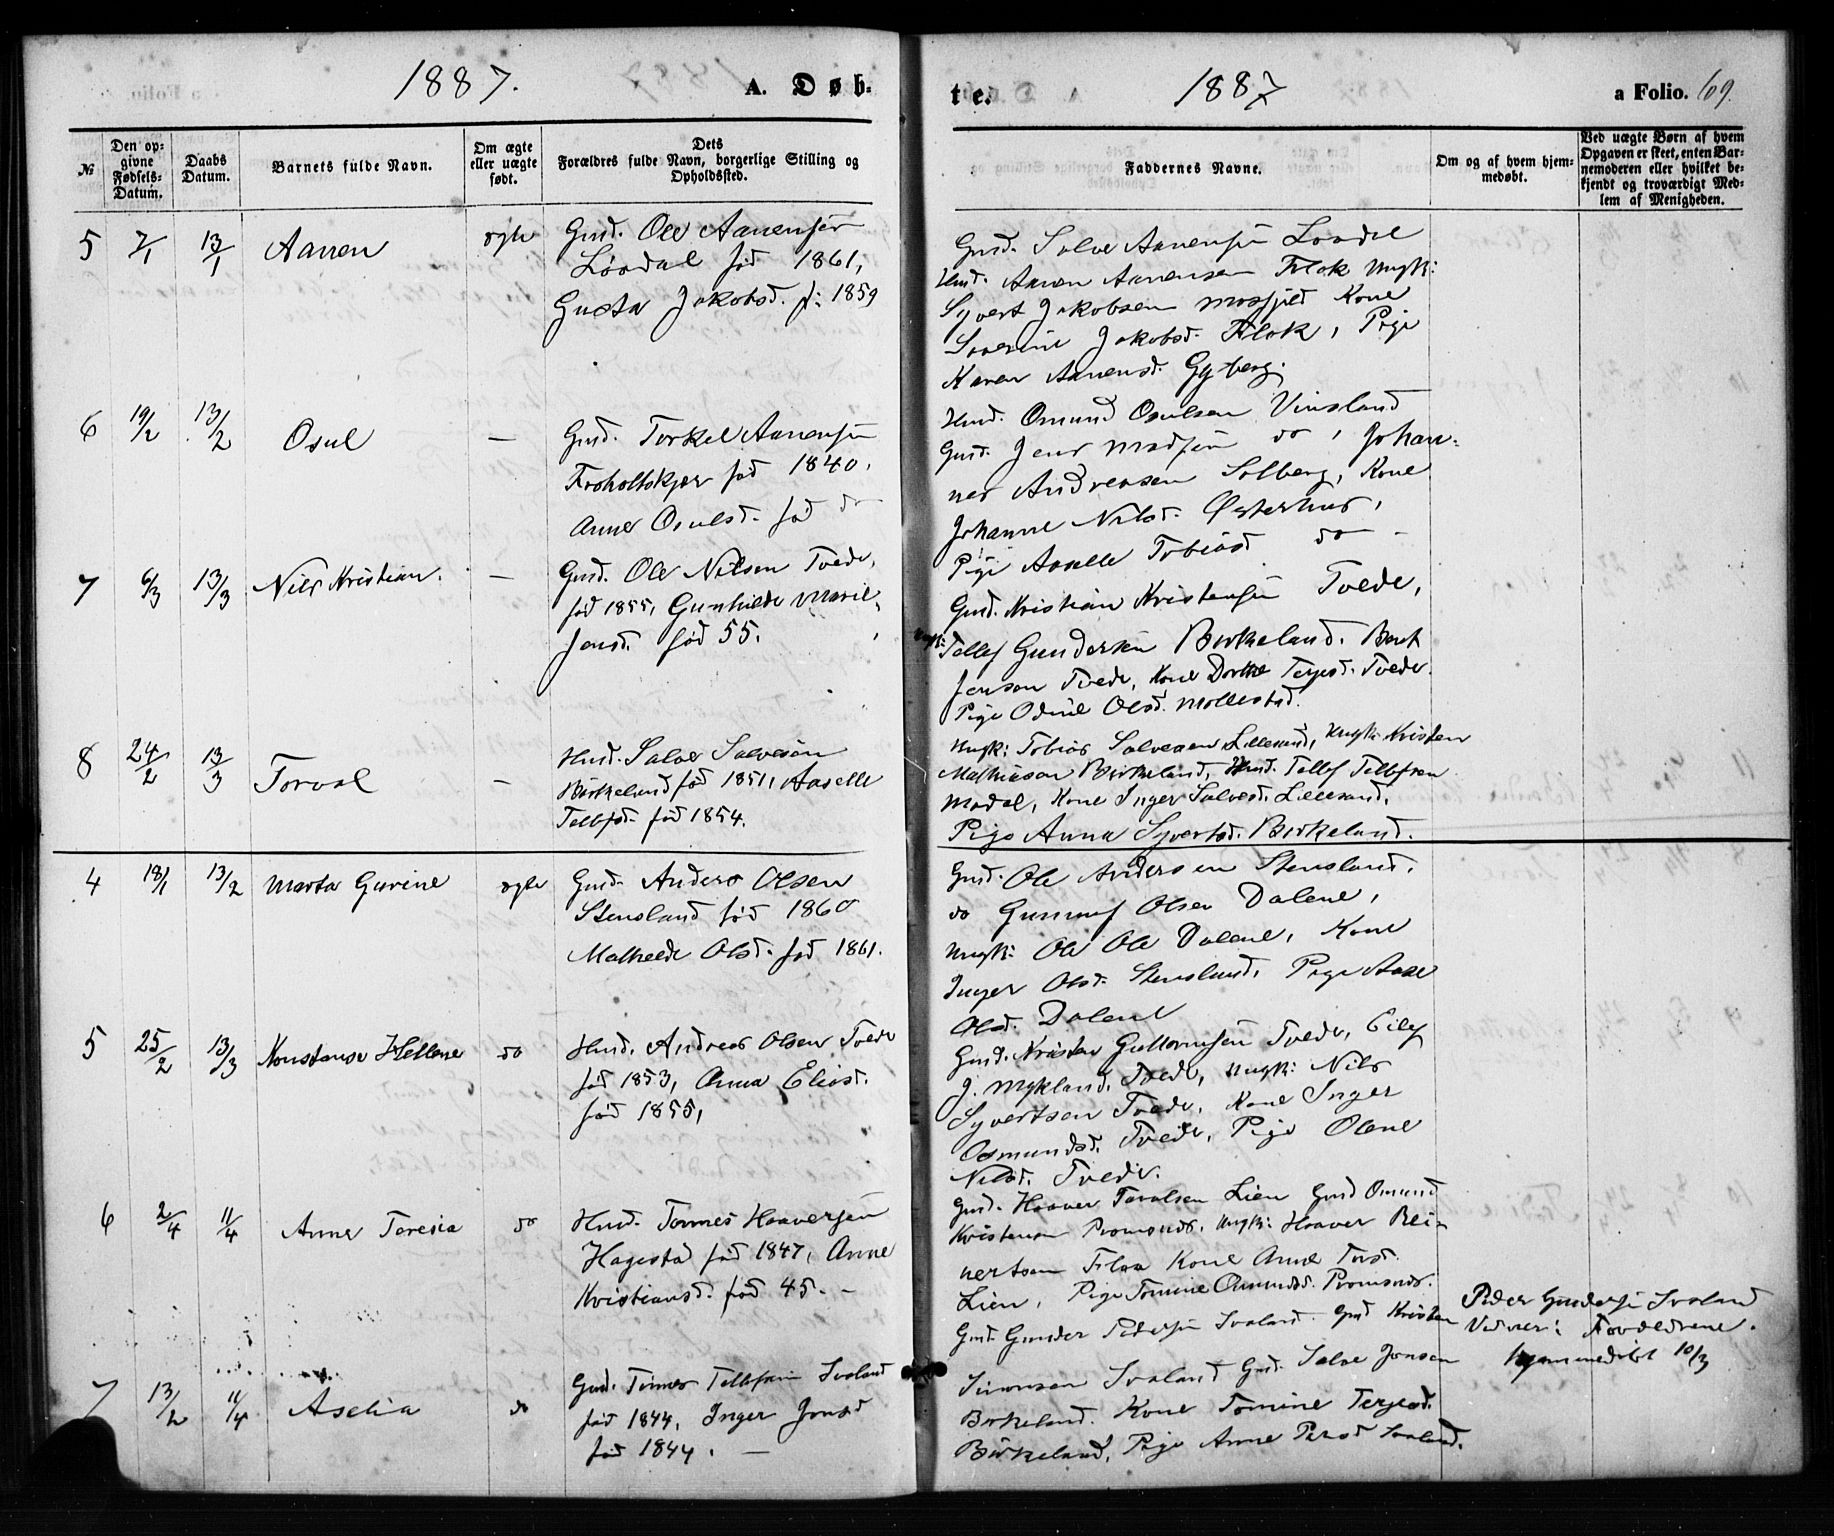 1887.
A. Døb-
te.
1887
a Folio. 69.
№
Den op-
givne
Fødsels-
Datum.
Daabs
Datum.
Barnets fulde Navn.
Om ægte
eller uægte
født.
Dets
Forældres fulde Navn, borgerlige Stilling og
Opholdssted.
Faddernes Navne.
Om og af hvem hjem-
medøbt.
Ved uægte Børn af hvem
Opgaven er skeet, enten Bar-
nemoderen eller hvilket be-
kjendt og troværdigt Med-
lem af Menigheden.
5 7/1 13/1 Aanen ægte
Gmd. Ole Aanensen
Løvdal fød 1861,
Gusta Jakobsd. f: 1859
Gmd. Salve Aanensen Løvdal
Hmd. Aanen Aanensen Flak Ungk:
Syvert Jakobsen Mosfjeld Kone
Severine Jakobsd. Flak, Pige
Karen Aanensd. Gyberg.
6 19/2 13/2 Osul —
Gmd. Torkel Aanensen
Froholtskjær fød 1840.
Anne Osulsd. fød do
Hmd. Omund Osulsen Vinsland
Gmd. Jens Madsen do, Johan-
nes Andreasen Solberg, Kone
Johanne Nilsd. Østerhus,
Pige Aaselle Tobiasd do —
7 6/3 13/3 Nils Kristian. —
Gmd. Ole Nilsen Tvede,
fød 1855, Gunhilde Marie
Jensd. fød 55.
Gmd. Kristian Kristensen Tvede,
Ungk: Tellef Gundersen Birkeland. Berent
Jensen Tvede, Kone Dorthe Terjesd. Tvede.
Pige Odine Olsd. Mollestad.
8 24/2 13/3 Torval —
Hmd. Salve Salvesen
Birkeland fød 1851, Aaselle
Tellefsd. fød 1854.
Ungk: Tobias Salvesen Lillesand, Ungk: Kristen
Mathiasen Birkeland, Hmd. Tellef Tellefsen
Modal, Kone Inger Salvesd. Lillesand,
Pige Anna Syvertsd. Birkeland.
4 18/1 13/2 Marta Gurine ægte
Gmd. Anders Olsen
Stensland fød 1860
Mathilde Olsd. fød 1861.
Gmd. Ole Andersen Stensland.
do Gunnuf Olsen Dalene,
Ungk: Ole Ols Dalene, Kone
Inger Olsd. Stensland, Pige Aase
Olsd. Dalene
5 25/2 13/3 Konstanse Hellene do
Hmd. Andreas Olsen Tvede
fød 1853, Anna Eliasd.
fød 1855,
Gmd. Kristen Guttormsen Tvede, Eilef
J. Mykland. Tvede, Ungk: Nils
Syvertsen Tvede, Kone Inger
Osmundsd. Tvede, Pige Olene
Nilsd. Tvede.
6 2/4 11/4 Anne Teresia do
Hmd. Tomes Haaversen
Hagestad fød 1847, Anne
Kristiansd. fød 45. —
Gmd. Haaver Taralsen Lien Gmd Omund
Kristensen Promsnds. Ungk: Haaver Rei-
nertsen Flaa Kone Anne Torsd.
Lien, Pige Tomine Omundsd. Promsnds.
7 13/2 11/4 Aselia do
Gmd. Tomes Tellefsen Svaland
fød 1844, Inger Jonsd
fød 1844. —
Gmd. Gunder Pedersen Svaland. Gmd Kristen
Simonsen Svaland Gmd. Salve Jonsen
Birkeland. Kone Tomine Terjesd.
Birkeland, Pige Anne Persd Svaland.
Peder Gundersen Svaland
hjemmedøbt 10/3